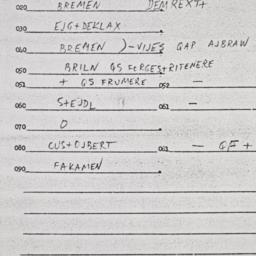 020 BREMEN DEMREXT+
030 EJG+DEKLAX
040 BREMEN )-VIJES GAP AJBRAW
050 BRILN GS FERGES+RITENERE
051 + GS FRUMERE 052 —
060 S+EJDL 061 —
070 O
080 CUS+OJBERT 063 — GF +
090 FAKAMEN